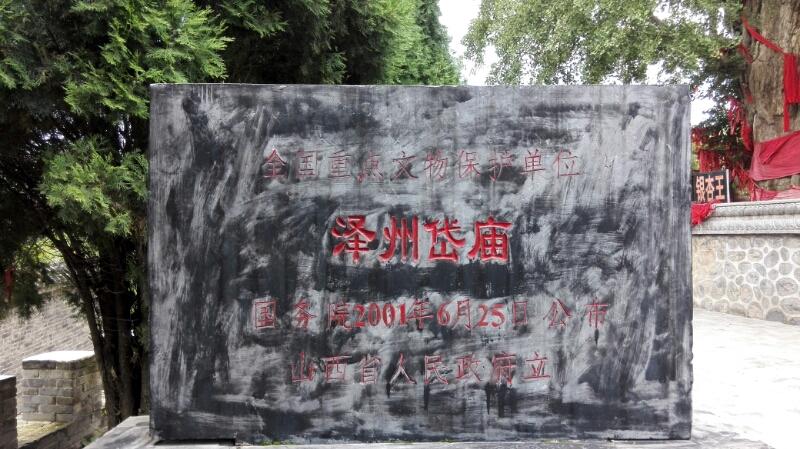 全国重点文物保护单位
泽州岱庙
国务院2001年6月25日公布
山西省人民政府立
银杏王